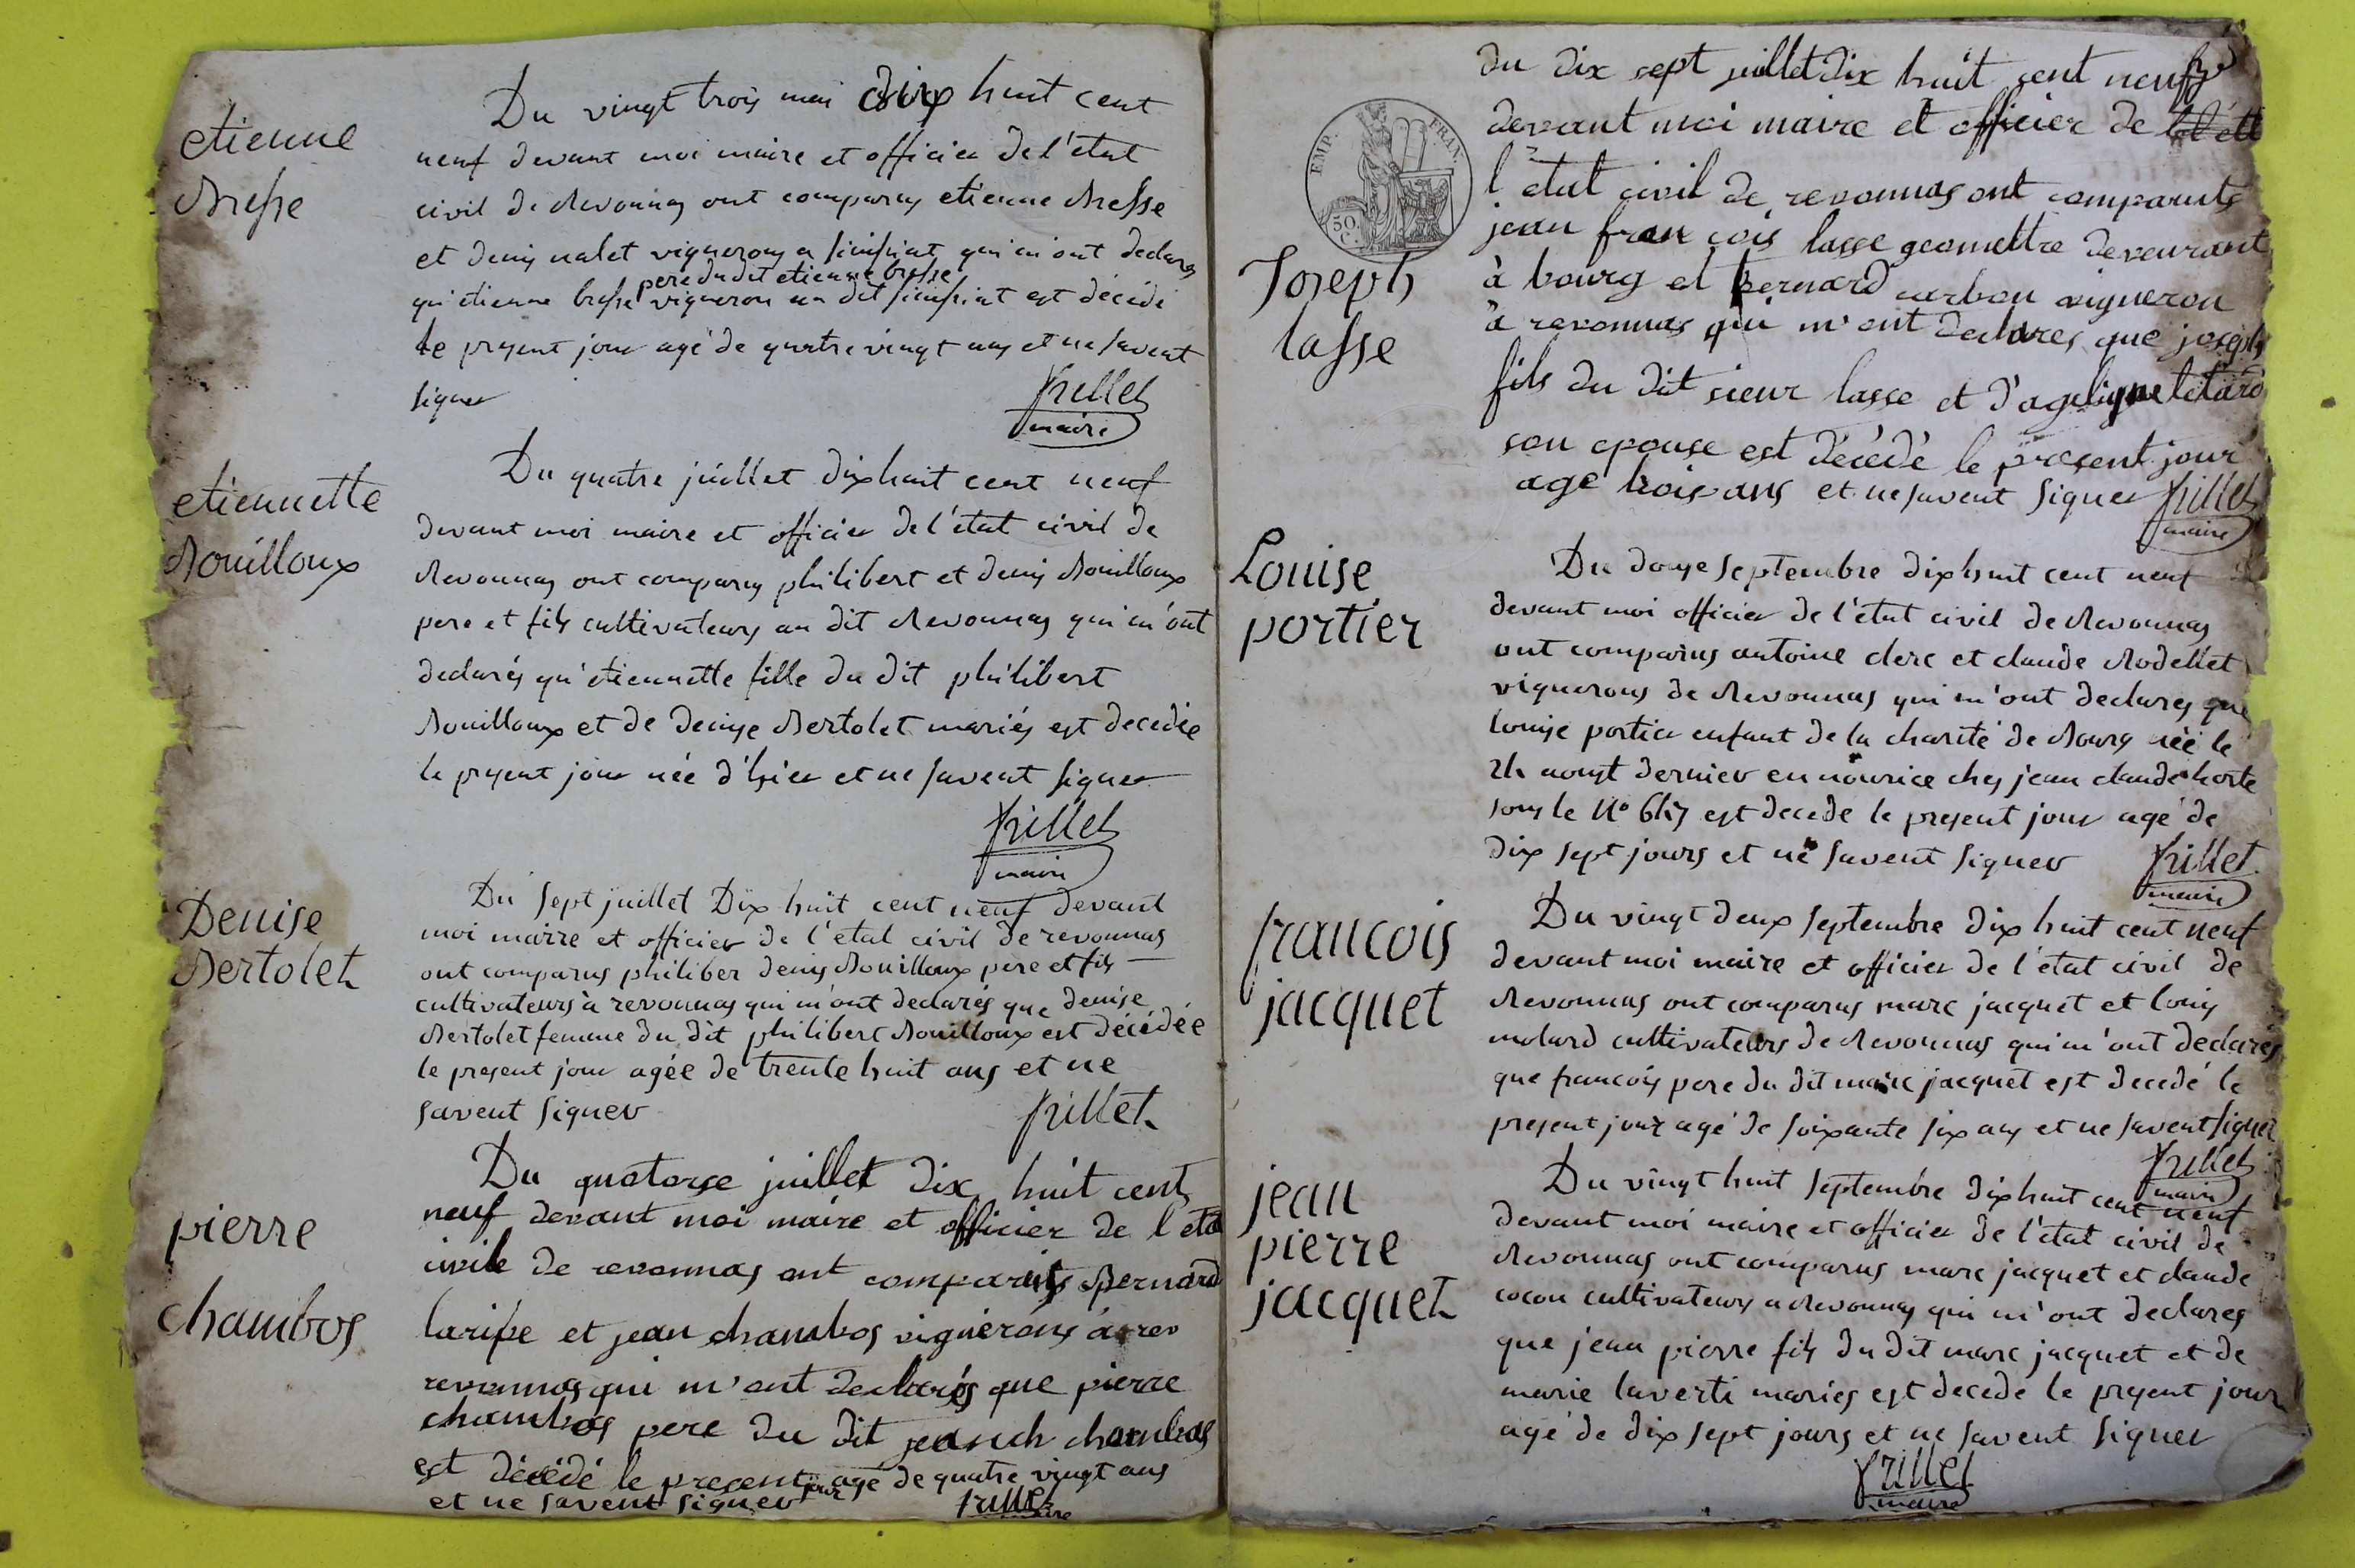 etienne
Bresse
Du vingt trois mai dix huit cent
neuf devant moi maire et officier de l'état
civil de Revonnas ont comparus etienne Bresse
et denis nalet vignerons a simsiat qui m'ont declarés
pere du dit etienne bresse
qu'etienne bresse vigneron au dit simsiat est décédé
le present jour agé de quatre vingt ans et ne savent
signer
frillet
maire
etiennette
Bouilloux
Du quatre juillet dix huit cent neuf
devant moi maire et officier de l'état civil de
Revonnas ont comparus philibert et denis Bouilloux
pere et fils cultivateurs au dit Revonnas qui m'ont
declarés qu'etiennette fille du dit philibert
Bouilloux et de denise Bertolet mariés est decedée
le present jour née d'hier et ne savent signer
frillet
maire
Denise
Bertolet
Du sept juillet Dix huit cent neuf devant
moi maire et officier de l'etat civil de revonnas
ont comparus philiber denis Bouilloux pere et fils
cultivateurs à revonnas qui m'ont declarés que denise
Bertolet femme du dit philibert Bouilloux est décédée
le present jour agée de trente huit ans et ne
savent signer
frillet
pierre
chambos
Du quatorse juillet dix huit cent
neuf devant moi maire et officier de l'eta
civile de revonnas ont comparuts Bernard
laripe et jean chambos vignerons à rev
revonnas qui m'ont declarés que pierre
chambos pere du dit jean ch chambos
est décédé le present jour agé de quatre vingt ans
et ne savent signer
frillet
maire
du dix sept juillet dix huit cent neuf
devant moi maire et officier de
EMP. FRAN.
50 C.
l'etat civil de revonnas ont comparuts
jean francois lasse geomettre demeurant
Joseph
lasse
à bourg et bernard carbon vigneron
à revonnas qui m'ont declares que joseph
fils du dit sieur lasse et d'agelique letard
son epouse est décédé le present jour
agé trois ans et ne savent signer frillet
maire
Louise
portier
Du douze septembre dix huit cent neuf
devant moi officier de l'état civil de Revonnas
ont comparus antoine clerc et claude Rodellet
vignerons de Revonnas qui m'ont declarés que
louise portier enfant de la charité de Bourg née le
24 aoust dernier en nourice chez jean claude
sous le N° 647 est decede le present jour agé de
dix sept jours et ne savent signer
frillet
maire
francois
jacquet
Du vingt deux septembre dix huit cent neuf
devant moi maire et officier de l'état civil de
Revonnas ont comparus marc jacquet et louis
molard cultivateurs de Revonnas qui m'ont declarés
que francois pere du dit marc jacquet est decedé le
present jour agé de soixante six ans et ne savent signer
frillet
maire
jean
pierre
jacquet
Du vingt huit septembre dix huit cent neuf
devant moi maire et officier de l'état civil de
Revonnas ont comparus marc jacquet et claude
cocon cultivateurs a Revonnas qui m'ont declares
que jean pierre fils du dit marc jacquet et de
marie laverti mariés est decede le present jour
agé de dix sept jours et ne savent signer
frillet
maire